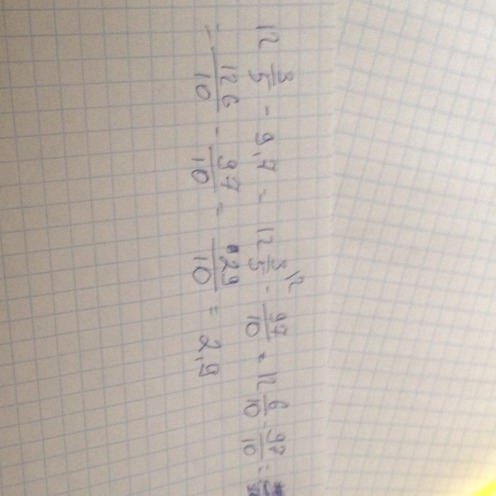 12 3/5 - 9,7 = 12 3/5 ^12 - 97/10 = 12 6/10 - 97/10 =
= 126/10 - 97/10 = 29/10 = 2,9